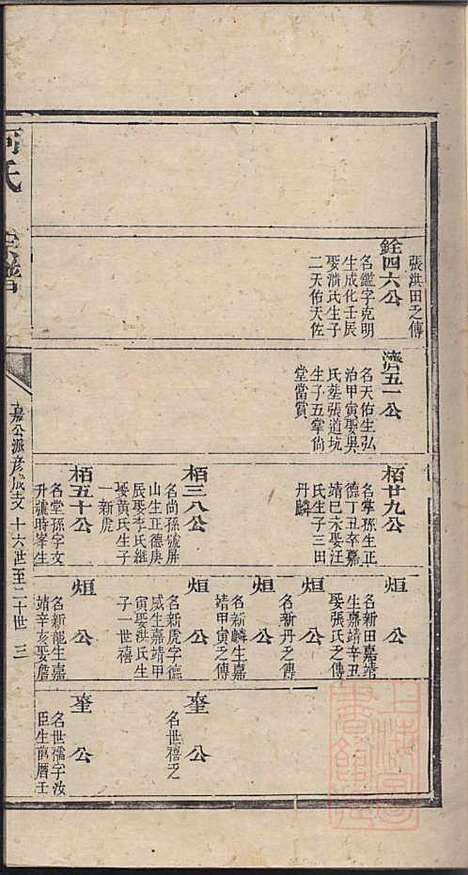 張洪田之傳
銓四六公
名鑑字克明
生成化壬辰
娶濟氏生子
二天佑天佐
濟五一公
名天佑生弘
治甲寅娶吳
氏塟張道坑
生子五掌尚
堂當賞
栢廿九公
名掌孫生正
德丁丑卒嘉
靖巳未娶汪
氏生子三田
丹麟
栢三八公
名尚孫號屏
山生正德庚
辰娶李氏繼
娶黃氏生子
一新虎
栢五十公
名堂孫字文
升號時峯生
烜公
名新田嘉靖
生嘉靖辛丑
娶張氏之傳
烜公
名新丹之傳
烜公
名新麟生嘉
靖甲寅之傳
烜公
名新虎字德
威生嘉靖甲
寅娶洪氏生
子一世禧
烜公
名新龍生嘉
靖辛亥娶詹
奎公
名世禧之
奎公
名世禧字汝
臣生萬曆壬
氏
譜
嘉公派彥成支 十六世至二十世 三